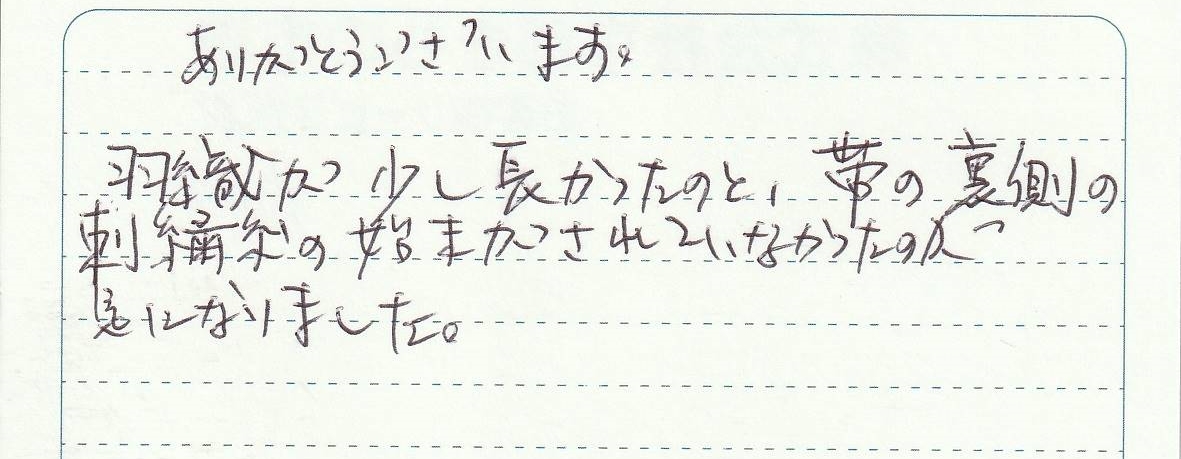 ありがとうございます。
羽織が少し長かったのと、帯の裏側の
刺繍糸の始まがされていなかったのが
気になりました。